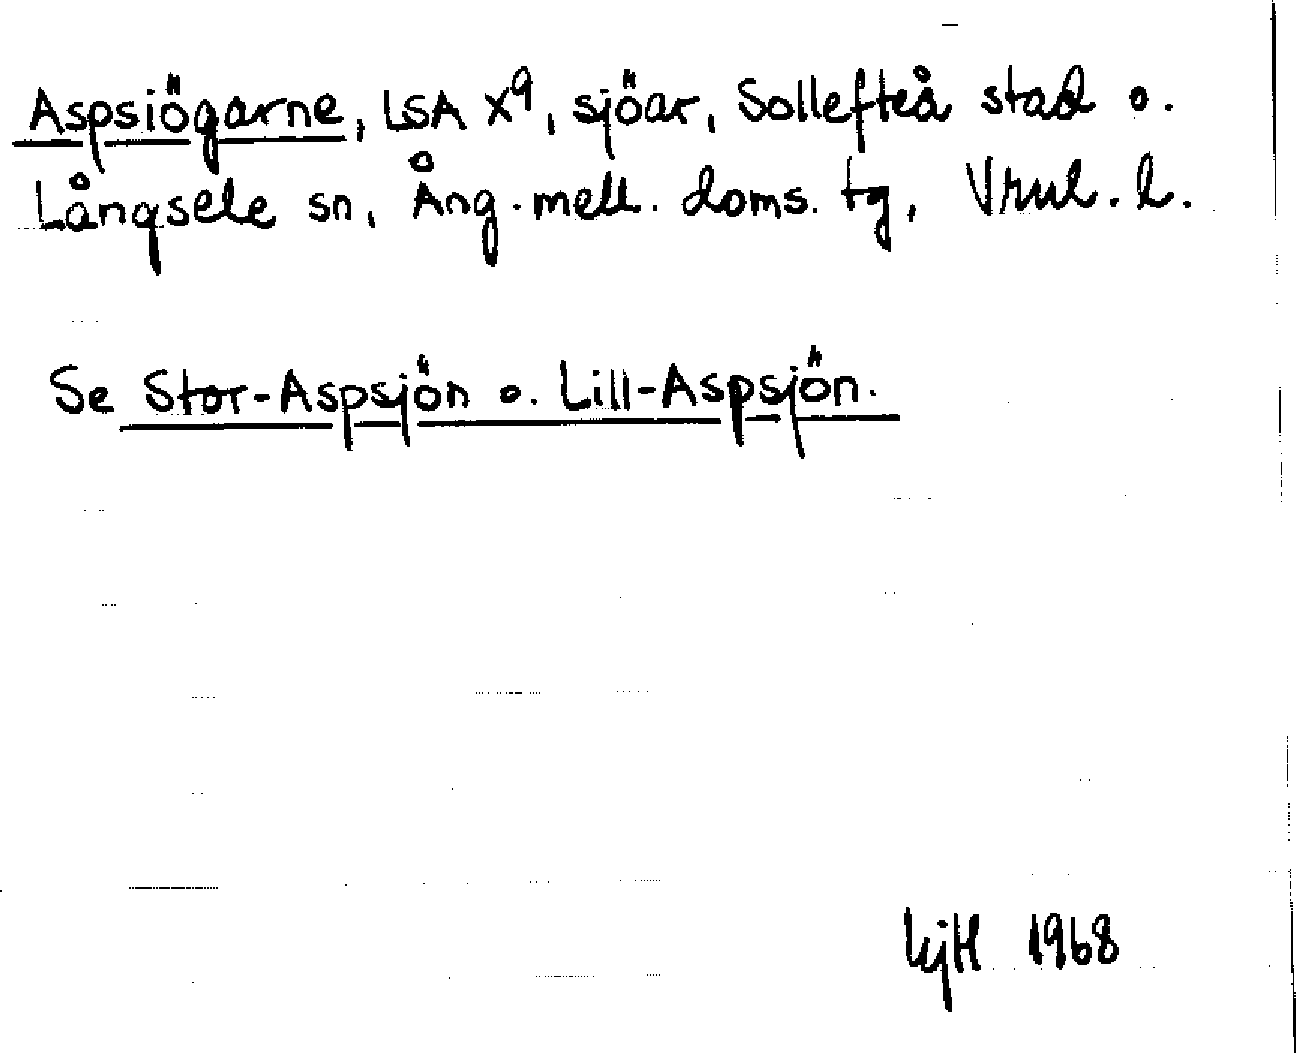 Aspsiögarne, LSA X⁹, sjöar, Sollefteå stad o.
Långsele sn, Ång. mell. doms. tg, Vrnl. l.
Se Stor-Aspsjön o. Lill-Aspsjön.
1968